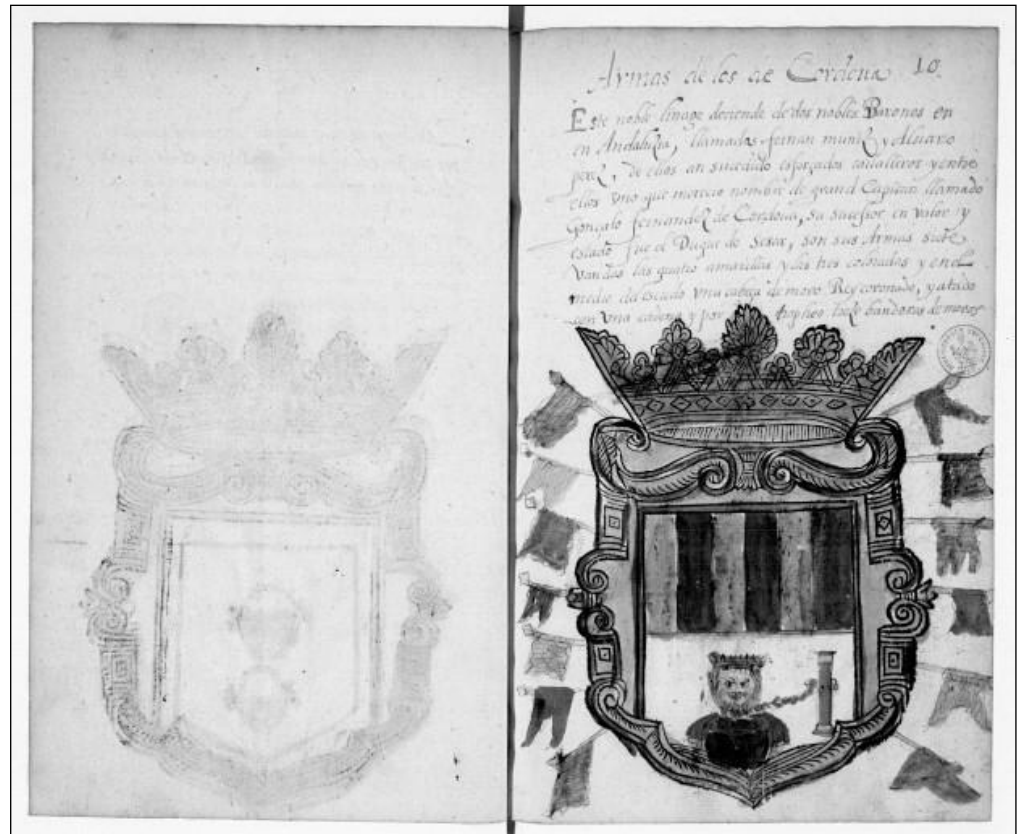 Armas de los de Cordoua 10.
Este noble linage deciende de dos nobles Barones en
en Andaluzia, llamados fernan muniz y Aluaro
perez, de ellos an sucedido esforçados caualleros y entre
ellos vno que merecio nombre de grand Capitan llamado
Gonçalo fernandez de Cordoua, su sucessor en valor y
estado fue el Duque de Sesa, son sus Armas siete
Vandas las quatro amarillas y las tres coloradas y en el
medio del escudo vna cabeça de moro Rey coronado, y atado
con vna cadena y por tropheo banderas de moros